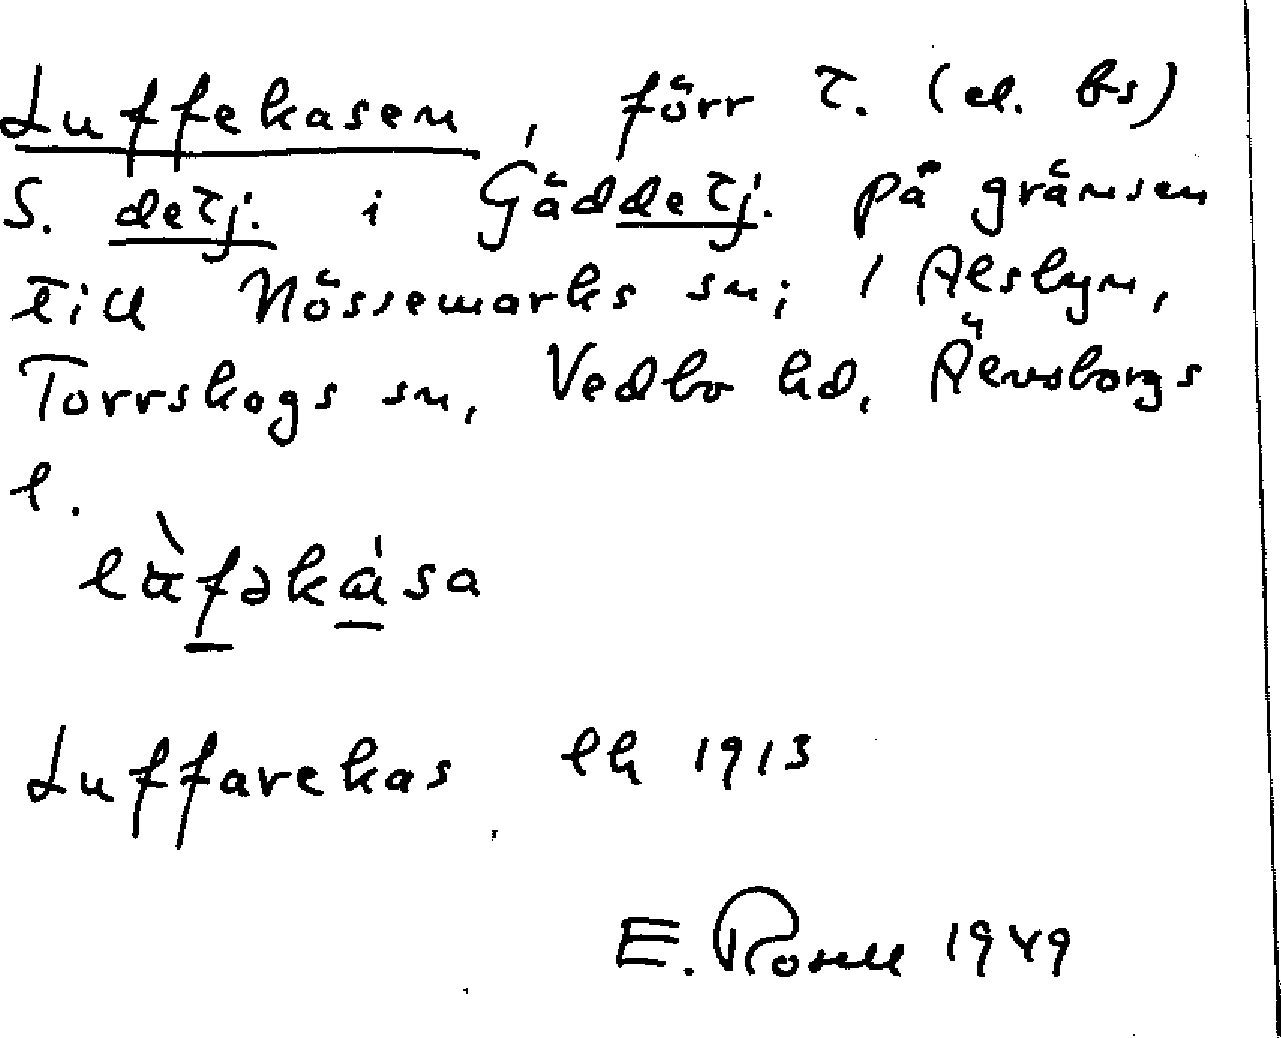 Luffekasen, förr t. (el. bs)
S. detj. i Gäddetj. på gränsen
till Nössemarks sn; i Alsbyn,
Torrskogs sn, Vedbo hd, Älvsborgs
l.
lùfəkása
Luffarekas lk 1913
E. Rosell 1949